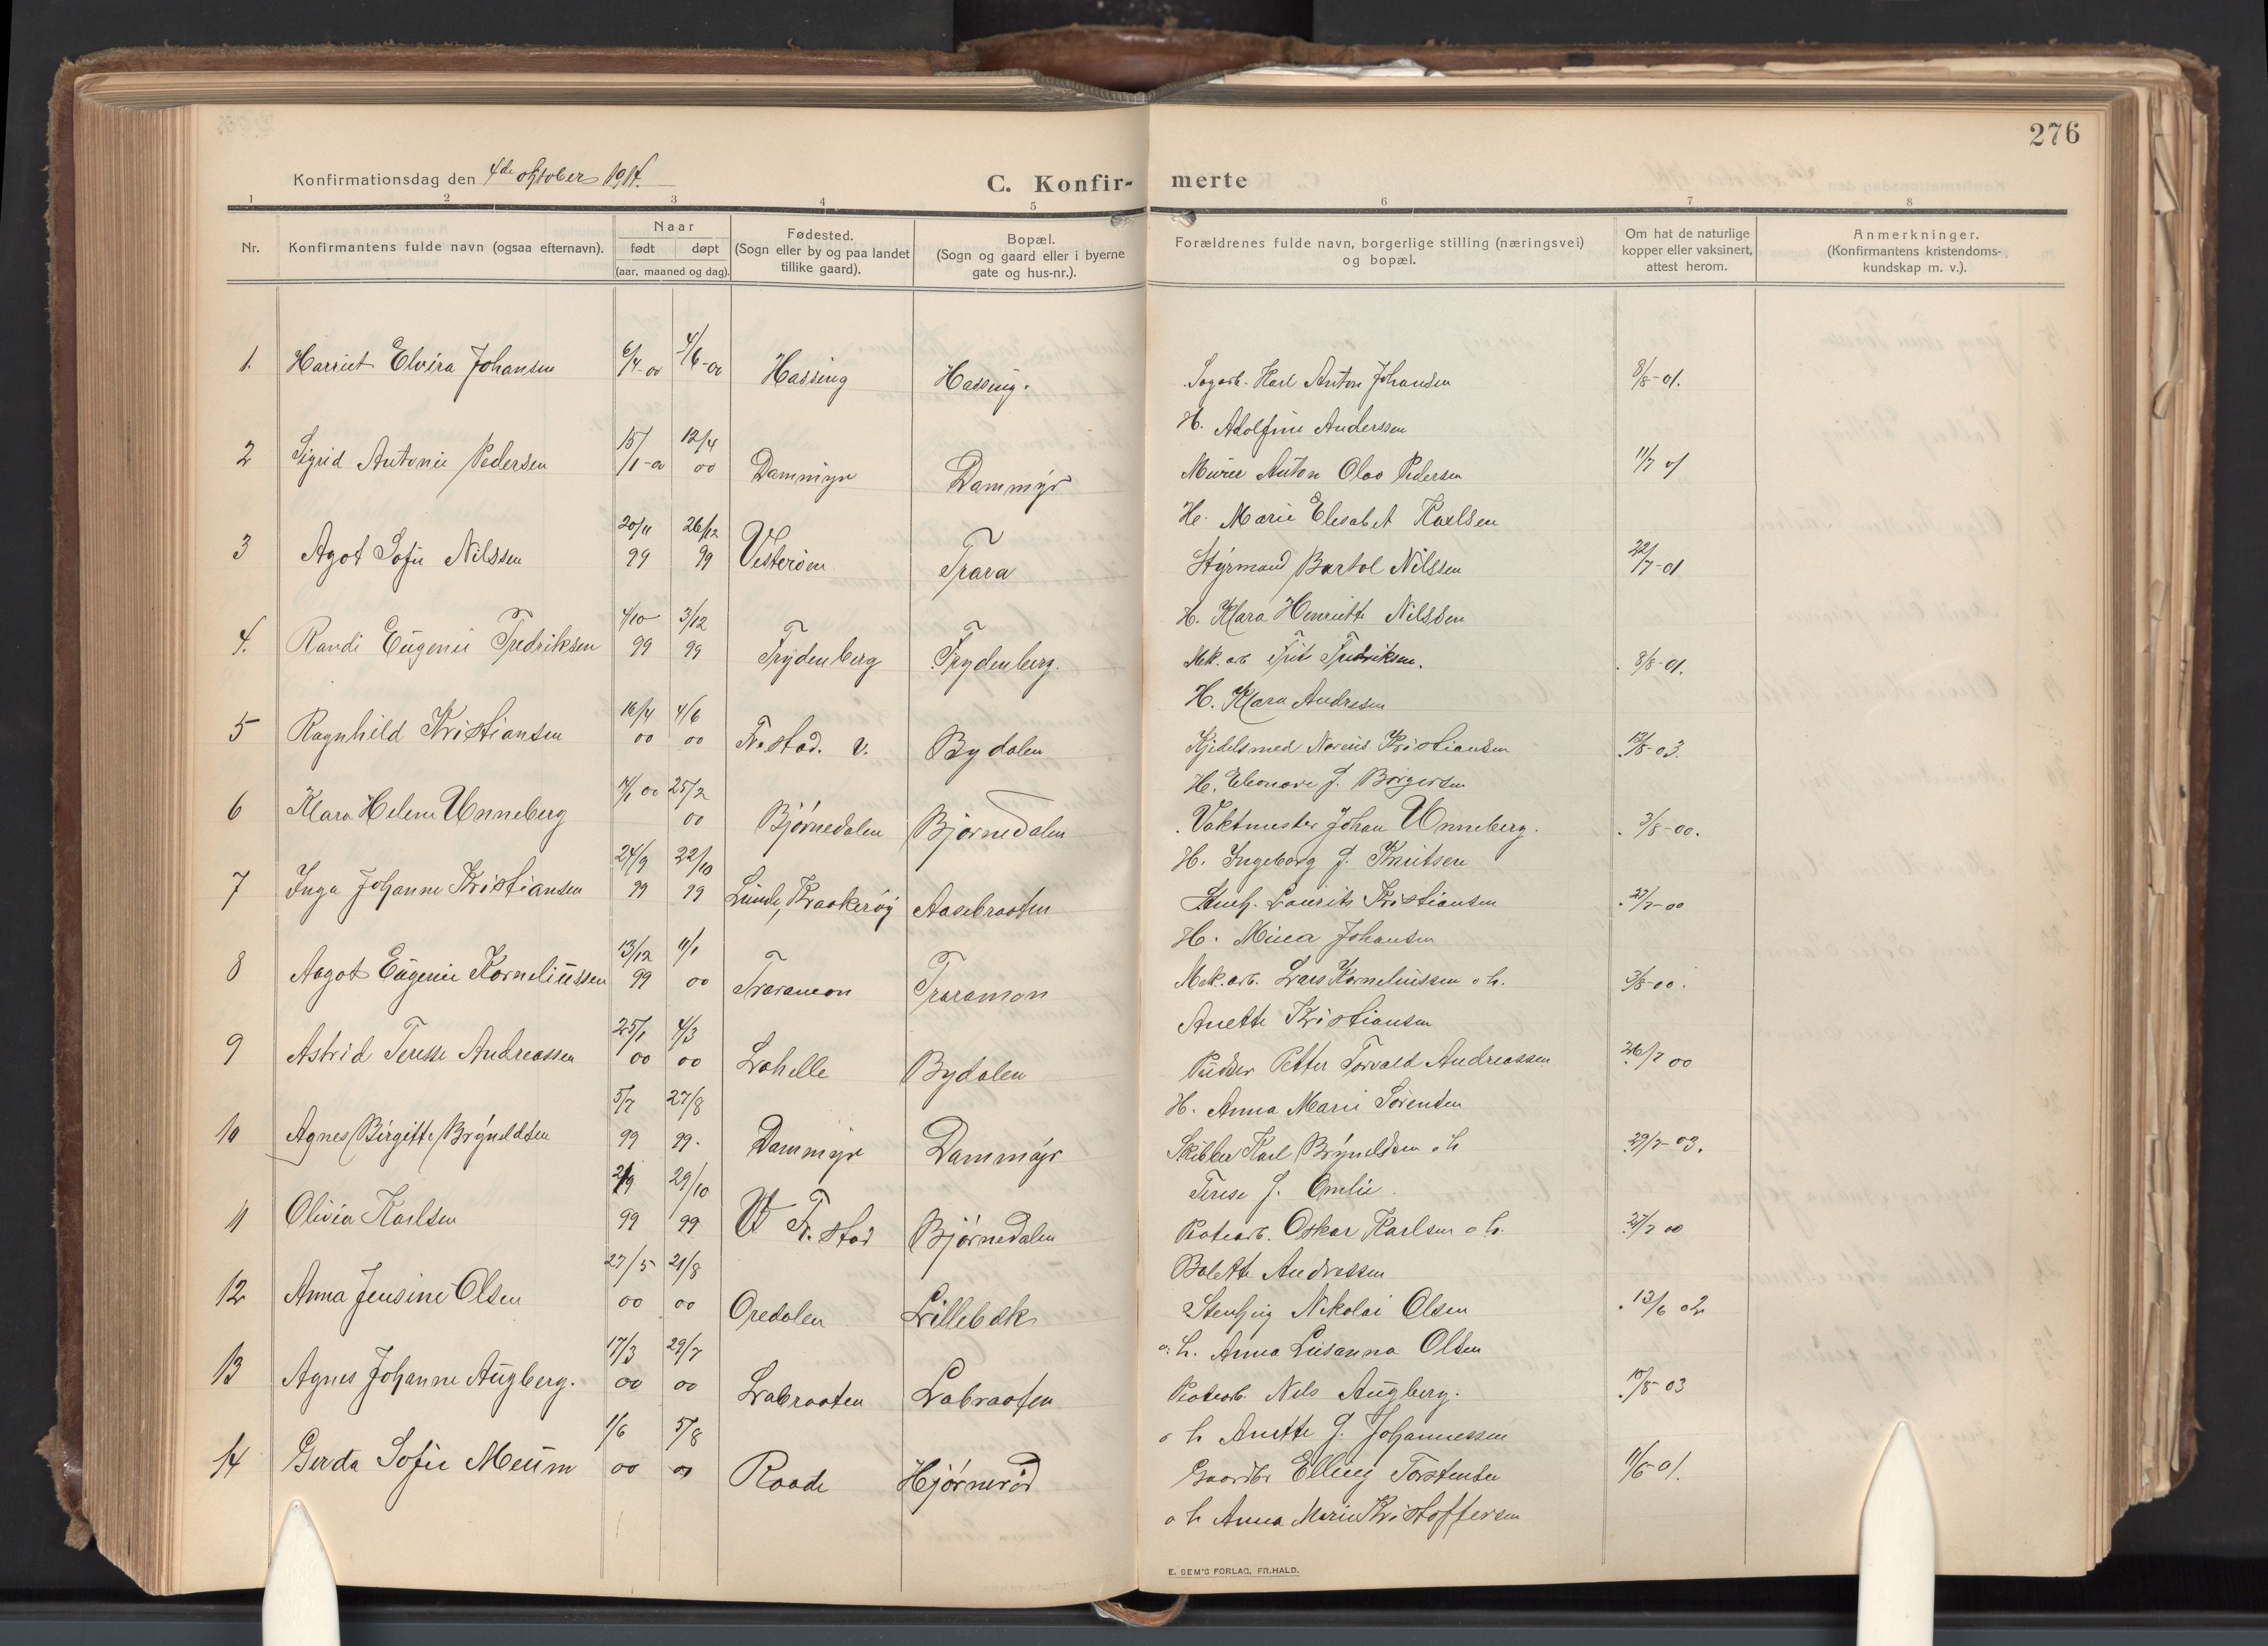 276
Konfirmationsdag den 4de oktober 1914.
C. Konfir- merte
1 2 3 4 5 6 7 8
Nr.
Konfirmantens fulde navn (ogsaa efternavn).
Naar
født døpt
(aar, maaned og dag).
Fødested.
(Sogn eller by og paa landet
tillike gaard).
Bopæl.
(Sogn og gaard eller i byerne
gate og hus-nr.).
Forældrenes fulde navn, borgerlige stilling (næringsvei)
og bopæl.
Om hat de naturlige
kopper eller vaksinert,
attest herom.
Anmerkninger.
(Konfirmantens kristendoms-
kundskap m. v.).
1. Harriet Elvira Johansen 6/4-00 4/6-00 Hassing Hassing. Sagarb. Karl Anton Johansen 8/8-01.
H. Adolfine Anderssen
2 Sigrid Antonie Pedersen 15/1-00 12/4 00 Dammyr Dammyr Murer Anton Olav Pedersen 11/7 01
H. Marie Elesabet Karlsen
3 Agot Sofie Nilssen 20/11 99 26/12 99 Vesterøen Trara Styrmand Bertol Nilssen 22/7-01
H. Klara Henriette Nilssen
4. Randi Eugenie Fredriksen 4/10 99 3/12 99 Frydenberg Frydenberg. Mek. arb. Frits Fredriksen. 8/8-01.
H. Klara Andresen
5 Ragnhild Kristiansen 16/4 00 4/6 00 Fr.stad. v. Bydalen Kjedelsmed Norenis Kristiansen 13/8-03.
H. Eleonore f. Børgersen
6 Klara Helene Unneberg 14/1 00 25/2 00 Bjørnedalen Bjørnedalen Vaktmester Johan Unneberg. 3/8-00.
H. Ingeborg f. Knutsen
7 Inga Johanne Kristiansen 24/9 99 22/10 99 Lunde, Kraakerøy Aasebraaten Stenh. Laurits Kristiansen 27/7-00
H. Mina Johansen
8 Aagot Eugenie Korneliussen 13/12 99 4/1 00 Traramon Traramon Mek. arb. Lars Korneliussen o h. 3/8-00.
Anette Kristiansen
9 Astrid Terese Andreassen 25/1 00 4/3 00 Lahelle Bydalen Pudser Petter Torvald Andreassen 26/7 00
H. Anna Marie Sørensen
10 Agnes Birgitte Bryneldsen 5/7 99 27/8 99. Dammyr Dammyr Skibber Karl Bryneldsen o h 29/7-03.
Terese f. Emilie
11 Olivia Karlsen 2/9 99 29/10 99 V Fr.stad Bjørnedalen Potearb. Oskar Karlsen o h. 27/7 00
Bolette Andressen
12 Anna Jensine Olsen 27/5 00 21/8 00 Oredalen Lillebæk Stenhug Nikolai Olsen 13/6 02
o. h. Anna Lusanna Olsen
13 Agnes Johanne Augberg. 17/3 00 29/7 00 Labraaten Labraaten Potearb. Nils Augberg. 15/8-03
o h Anette f. Johannessen
14 Gerda Sofie Meum 1/6 00 5/8 00 Raade Hjørnerød Gaardbr Elling Torstensen 11/6-01.
o h Anna Marie Kristoffersen
E. SEM'S FORLAG, FR.HALD.